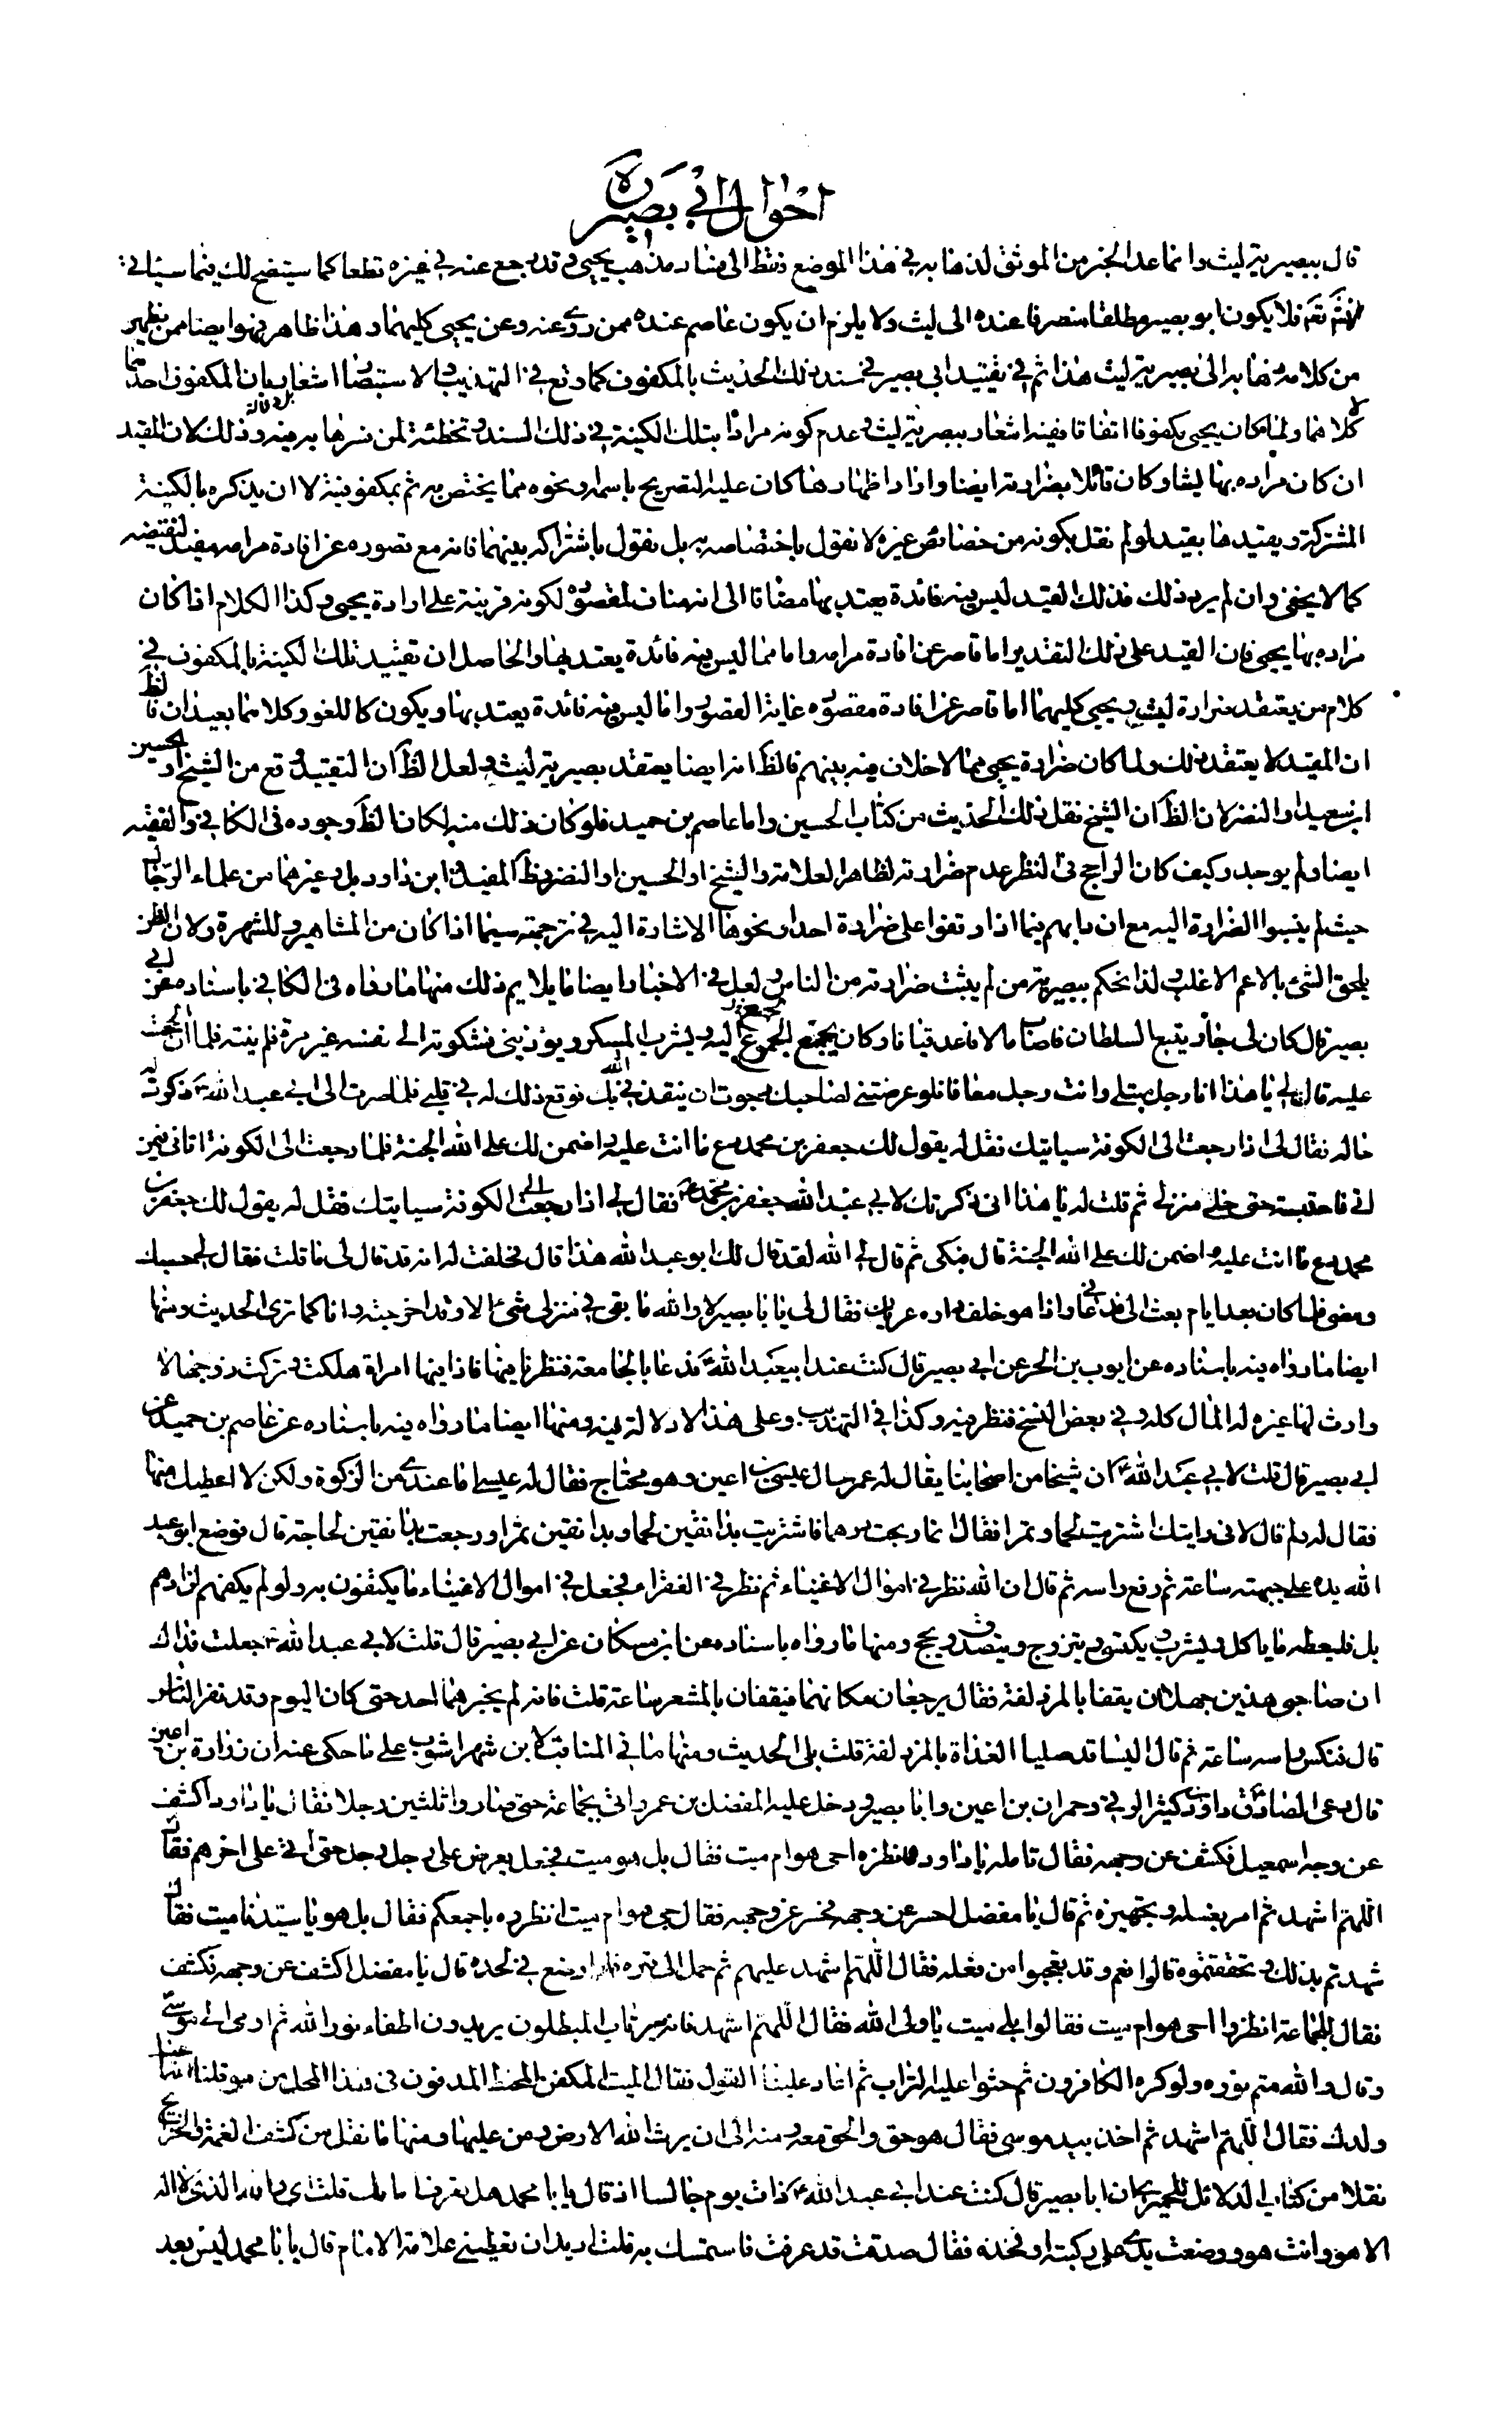 احوال ابي بصير
قال ببصيرية ليث وانما عد الخبر من الموثق لذهابه في هذا الموضع فقط الى فساد مذهب يحيى وقد رجع عنه في غيره قطعا كما سيتضح لك فيما سيأتي
انشم تعم فلا يكون ابو بصير مطلقا منصرفا عنده الى ليث ولا يلزم ان يكون عاصم عنده ممن روى عنه وعن يحيى كليهما وهذا ظاهر فهو ايضا ممن يظهر
من كلامه ذهابه الى بصيرية ليث هذا ثم في تقييد ابي بصير في سند ذلك الحديث بالمكفوف كما وقع في التهذيب والاستبصار اشعار بان المكفوف احدهما
لا كلاهما ولما كان يحيى مكفوفا اتفاقا ففيه اشعار ببصيرية ليث وعدم كونه مرادا بتلك الكنية في ذلك السند وتخطئة لمن فسرها به فيه وذلك لان المقيد
ان كان مراده بها ليثا وكان قائلا بضرارته ايضا واراد اظهارها كان عليه التصريح باسمه ونحوه مما يختص به ثم بمكفوفيته لا ان يذكره بالكنية
المشتركة ويقيدها بقيد لو لم نقل بكونه من خصائص غيره لا نقول باختصاصه به بل نقول باشتراكه بينهما فانه مع قصوره عن افادة مرامه مفيد لنقيضه
كما لا يخفى وان لم يرد ذلك فذلك القيد ليس فيه فائدة يعتد بها مضافا الى انه مناف لمقصوده لكونه قرينة على ارادة يحيى وكذا الكلام اذا كان
مراده بها يحيى فان القيد على ذلك التقدير اما قاصر عن افادة مرامه واما مما ليس فيه فائدة يعتد بها والحاصل ان تقييد تلك الكنية بالمكفوف في
كلام من يعتقد ضرارة ليث ويحيى كليهما اما قاصر عن افادة مقصوده غاية القصور واما ليس فيه فائدة يعتد بها ويكون كاللغو وكلاهما بعيدان فالظ
ان المقيد لا يعتقد ذلك ولما كان ضرارة يحيى مما لا خلاف فيه بينهم فالظ انه ايضا يعتقد بصيرية ليث ولعل الظ ان التقييد وقع من الشيخ او الحسين
ابن سعيد او النضر لان الظ ان الشيخ نقل ذلك الحديث من كتاب الحسين واما عاصم بن حميد فلو كان ذلك منه لكان الظ وجوده في الكافي والفقيه
ايضا ولم يوجد وكيف كان الراجح في النظر عدم ضرارته لظاهر العلامة والشيخ او الحسين او النضر وظ المفيد وابن داود بل وغيرهما من علماء الرجال
حيث لم ينسبوا الضرارة اليه مع ان دابهم فيما اذا وقفوا على ضرارة احد ونحوها الاشارة اليه في ترجمته سيما اذا كان من المشاهير وللشهرة ولان الظن
يلحق الشئ بالاعم الاغلب ولذا نحكم ببصيرية من لم يثبت ضرارته من الناس ولعل في الاخبار ايضا ما يلايم ذلك منها ما رواه في الكافي باسناده عن ابي
بصير قال كان لي جار يتبع السلطان فاصاب مالا فاعد قيانا وكان يجمع الجموع اليه ويشرب المسكر ويؤذيني فشكوته الى نفسه غير مرة فلم ينته فلما ان الححت
عليه قال لي يا هذا انا رجل مبتلى وانت رجل معافا فلو عرضتني لصاحبك رجوت ان ينقذني الله بك فوقع ذلك له في قلبي فلما صرت الى ابي عبد الله ع ذكرت له
حاله فقال لي اذا رجعت الى الكوفة سيأتيك فقل له يقول لك جعفر بن محمد دع ما انت عليه واضمن لك على الله الجنة فلما رجعت الى الكوفة اتاني فيمن
اتى فاحتبسته حتى خلى منزلي ثم قلت له يا هذا اني ذكرتك لابي عبد الله جعفر بن محمد ع فقال لي اذا رجعت الى الكوفة سيأتيك فقل له يقول لك جعفر بن
محمد دع ما انت عليه واضمن لك على الله الجنة قال فبكى ثم قال لي الله لقد قال لك ابو عبد الله هذا قال فحلفت له انه قد قال لي ما قلت فقال لي حسبك
ومضى فلما كان بعد ايام بعث الي فدعاني واذا هو خلف داره عريان فقال لي يا ابا بصير لا والله ما بقي في منزلي شئ الا وقد اخرجته وانا كما ترى الحديث ومنها
ايضا ما رواه فيه باسناده عن ايوب بن الحر عن ابي بصير قال كنت عند ابي عبد الله ع فدعا بالجامعة فنظرنا فيها فاذا فيها امراة هلكت وتركت زوجها لا
وارث لها غيره له المال كله وفي بعض النسخ فنظر فيه وكذا في التهذيب وعلى هذا لا دلالة فيه ومنها ايضا ما رواه فيه باسناده عن عاصم بن حميد عن
ابي بصير قال قلت لابي عبد الله ع ان شيخا من اصحابنا يقال له عمر سال عيسى بن اعين وهو محتاج فقال له عيسى اما عندي من الزكوة ولكن لا اعطيك منها
فقال له ولم قال لاني رايتك اشتريت لحما وتمرا فقال انما ربحت درهما فاشتريت بدانقين لحما وبدانقين تمرا ورجعت بدانقين لحاجة قال فوضع ابو عبد
الله يده على جبهته ساعة ثم رفع راسه ثم قال ان الله نظر في اموال الاغنياء ثم نظر في الفقراء فجعل في اموال الاغنياء ما يكتفون به ولو لم يكفهم لزادهم
بل فليعطه ما ياكل ويشرب ويكتسي ويتزوج ويتصدق ويحج ومنها ما رواه باسناده عن ابن مسكان عن ابي بصير قال قلت لابي عبد الله ع جعلت فداك
ان صاحبي هذين جهلا ان يقفا بالمزدلفة فقال يرجعان مكانهما فيقفان بالمشعر ساعة قلت فانه لم يخبرهما احد حتى كان اليوم وقد نفر الناس
قال فنكس راسه ساعة ثم قال اليسا قد صليا الغداة بالمزدلفة قلت بلى الحديث ومنها ما في المناقب لابن شهراشوب على ما حكى عنه ان زرارة بن اعين
قال دعى الصادق ع داود بن كثير الرقي وحمران بن اعين وابا بصير ودخل عليه المفضل بن عمر واتى بجماعة حتى صاروا ثلثين رجلا فقال يا داود اكشف
عن وجه اسمعيل فكشف عن وجهه فقال تامله يا داود فانظره احي هو ام ميت فقال بل هو ميت فجعل يعرض على رجل رجل حتى اتى على اخرهم فقال
اللهم اشهد ثم امر بغسله وتجهيزه ثم قال يا مفضل احسر عن وجهه فحسر عن وجهه فقال حي هو ام ميت انظروه باجمعكم فقال بل هو يا سيدنا ميت فقال
شهدتم بذلك وتحققتموه قالوا نعم وقد تعجبوا من فعله فقال اللهم اشهد عليهم ثم حمل الى قبره فلما وضع في لحده قال يا مفضل اكشف عن وجهه فكشف
فقال للجماعة انظروا احي هو ام ميت فقالوا بلى ميت يا ولي الله فقال اللهم اشهد فانه سيرتاب المبطلون يريدون اطفاء نور الله ثم اومى الى موسى ع
وقال والله متم نوره ولو كره الكافرون ثم حثوا عليه التراب ثم اعاد علينا القول فقال الميت المكفن المحنط المدفون في هذا المحل من هو قلنا
ولدك فقال اللهم اشهد ثم اخذ بيد موسى فقال هو حق والحق معه ومنه الى ان يرث الله الارض ومن عليها ومنها ما نقل من كشف الغمة
نقلا من كتاب الدلائل للحميري ان ابا بصير قال كنت عند ابي عبد الله ع ذات يوم جالسا اذ قال يا ابا محمد هل تعرف امامك قلت اي والله الذي لا اله
الا هو وانت هو ووضعت يدي على ركبته او فخذه فقال صدقت قد عرفت فاستمسك به قلت اريد ان تعطيني علامة الامام قال يا ابا محمد ليس بعد